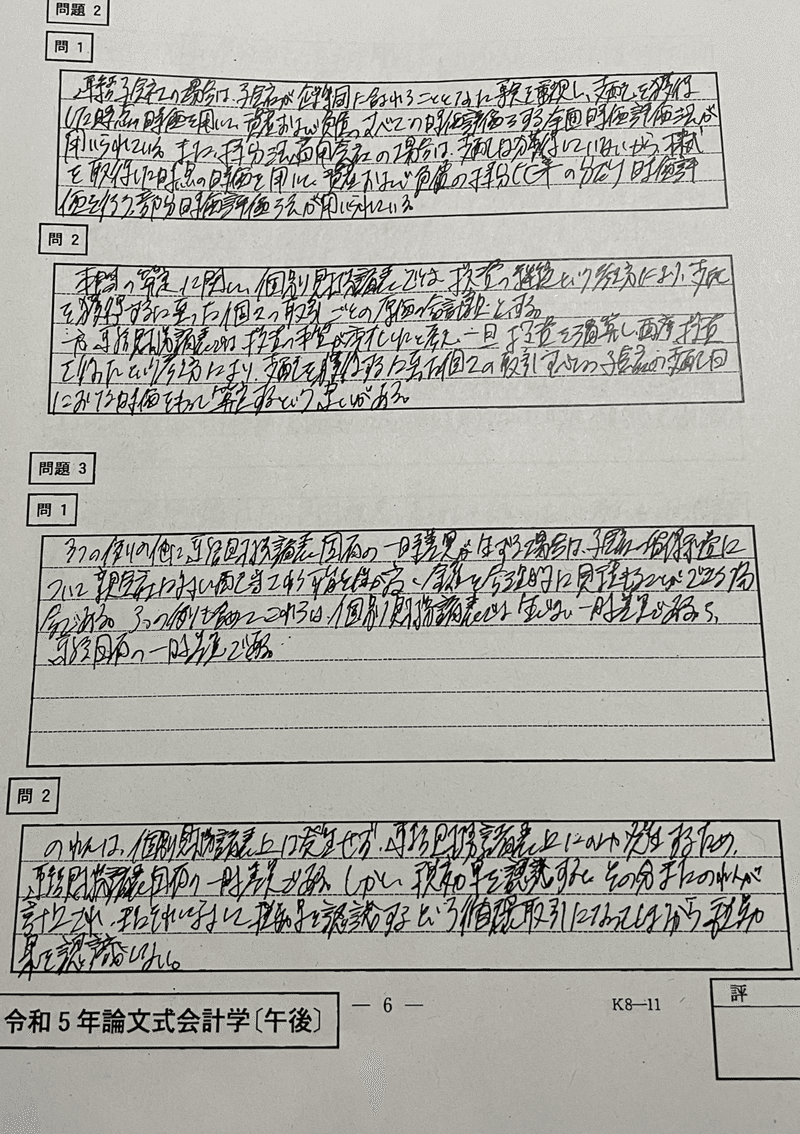 問題 2
問 1
連結子会社の場合は、子会社が企業集団に含まれることとなった事実を重視し、支配を獲得
した時点の時価を用いて、資産および負債のすべてを時価評価する全面時価評価法が
用いられている。また、持分法適用会社の場合は、支配を獲得していないから、株式
を取得した時点の時価を用いて、資産および負債の持分比率の分だけ時価評
価を行う、部分時価評価法が用いられている。
問 2
算定に関し、個別財務諸表では、投資の継続という考え方により、支配
を獲得するに至った個々の取引ごとの原価の合計額とする。
一方、連結財務諸表では、投資の実質が変化したと考え、一旦投資を清算し、再度投資
という考え方により、支配を獲得するに至った個々の取引すべての支配日
における時価をもって算定するという違いがある。
問題 3
問 1
3つの例の他に連結財務諸表固有の一時差異が生ずる場合は、子会社の留保利益に
ついて親会社において
合である。3つの例も含めてこれらは、個別財務諸表では生じない一時差異であるから、
連結固有の一時差異である。
問 2
のれんは、個別財務諸表上は発生せず、連結財務諸表上にのみ発生するため、
連結財務諸表固有の一時差異である。しかし、税効果を認識すると、その分またのれんが
計上され、またそれに対して税効果を認識するという循環取引になってしまうから、税効
果を認識しない。
— 6 —
K8—11
評
令和5年論文式会計学〔午後〕